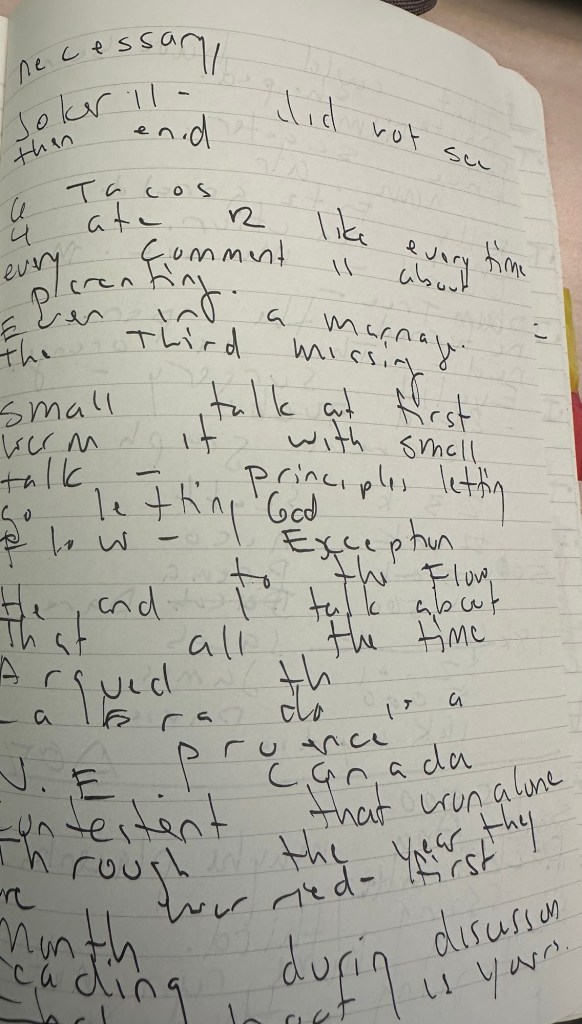 necessary
Joker 11 - did not see
than end
4 Tacos
4 ate 12 like every time
every comment 11 about
Parenting.
Even ind a marriage. =
the Third missing
small talk at first
with small
talk - principles letting
Go letting God
flow - Exception
to the Flow
He and I talk about
That all the time
Argued th
Labrado is a
pruvence
J.E. Canada
Contestent that won alone
Through the year they
married - first
Month
eading durin discusson
is yours.